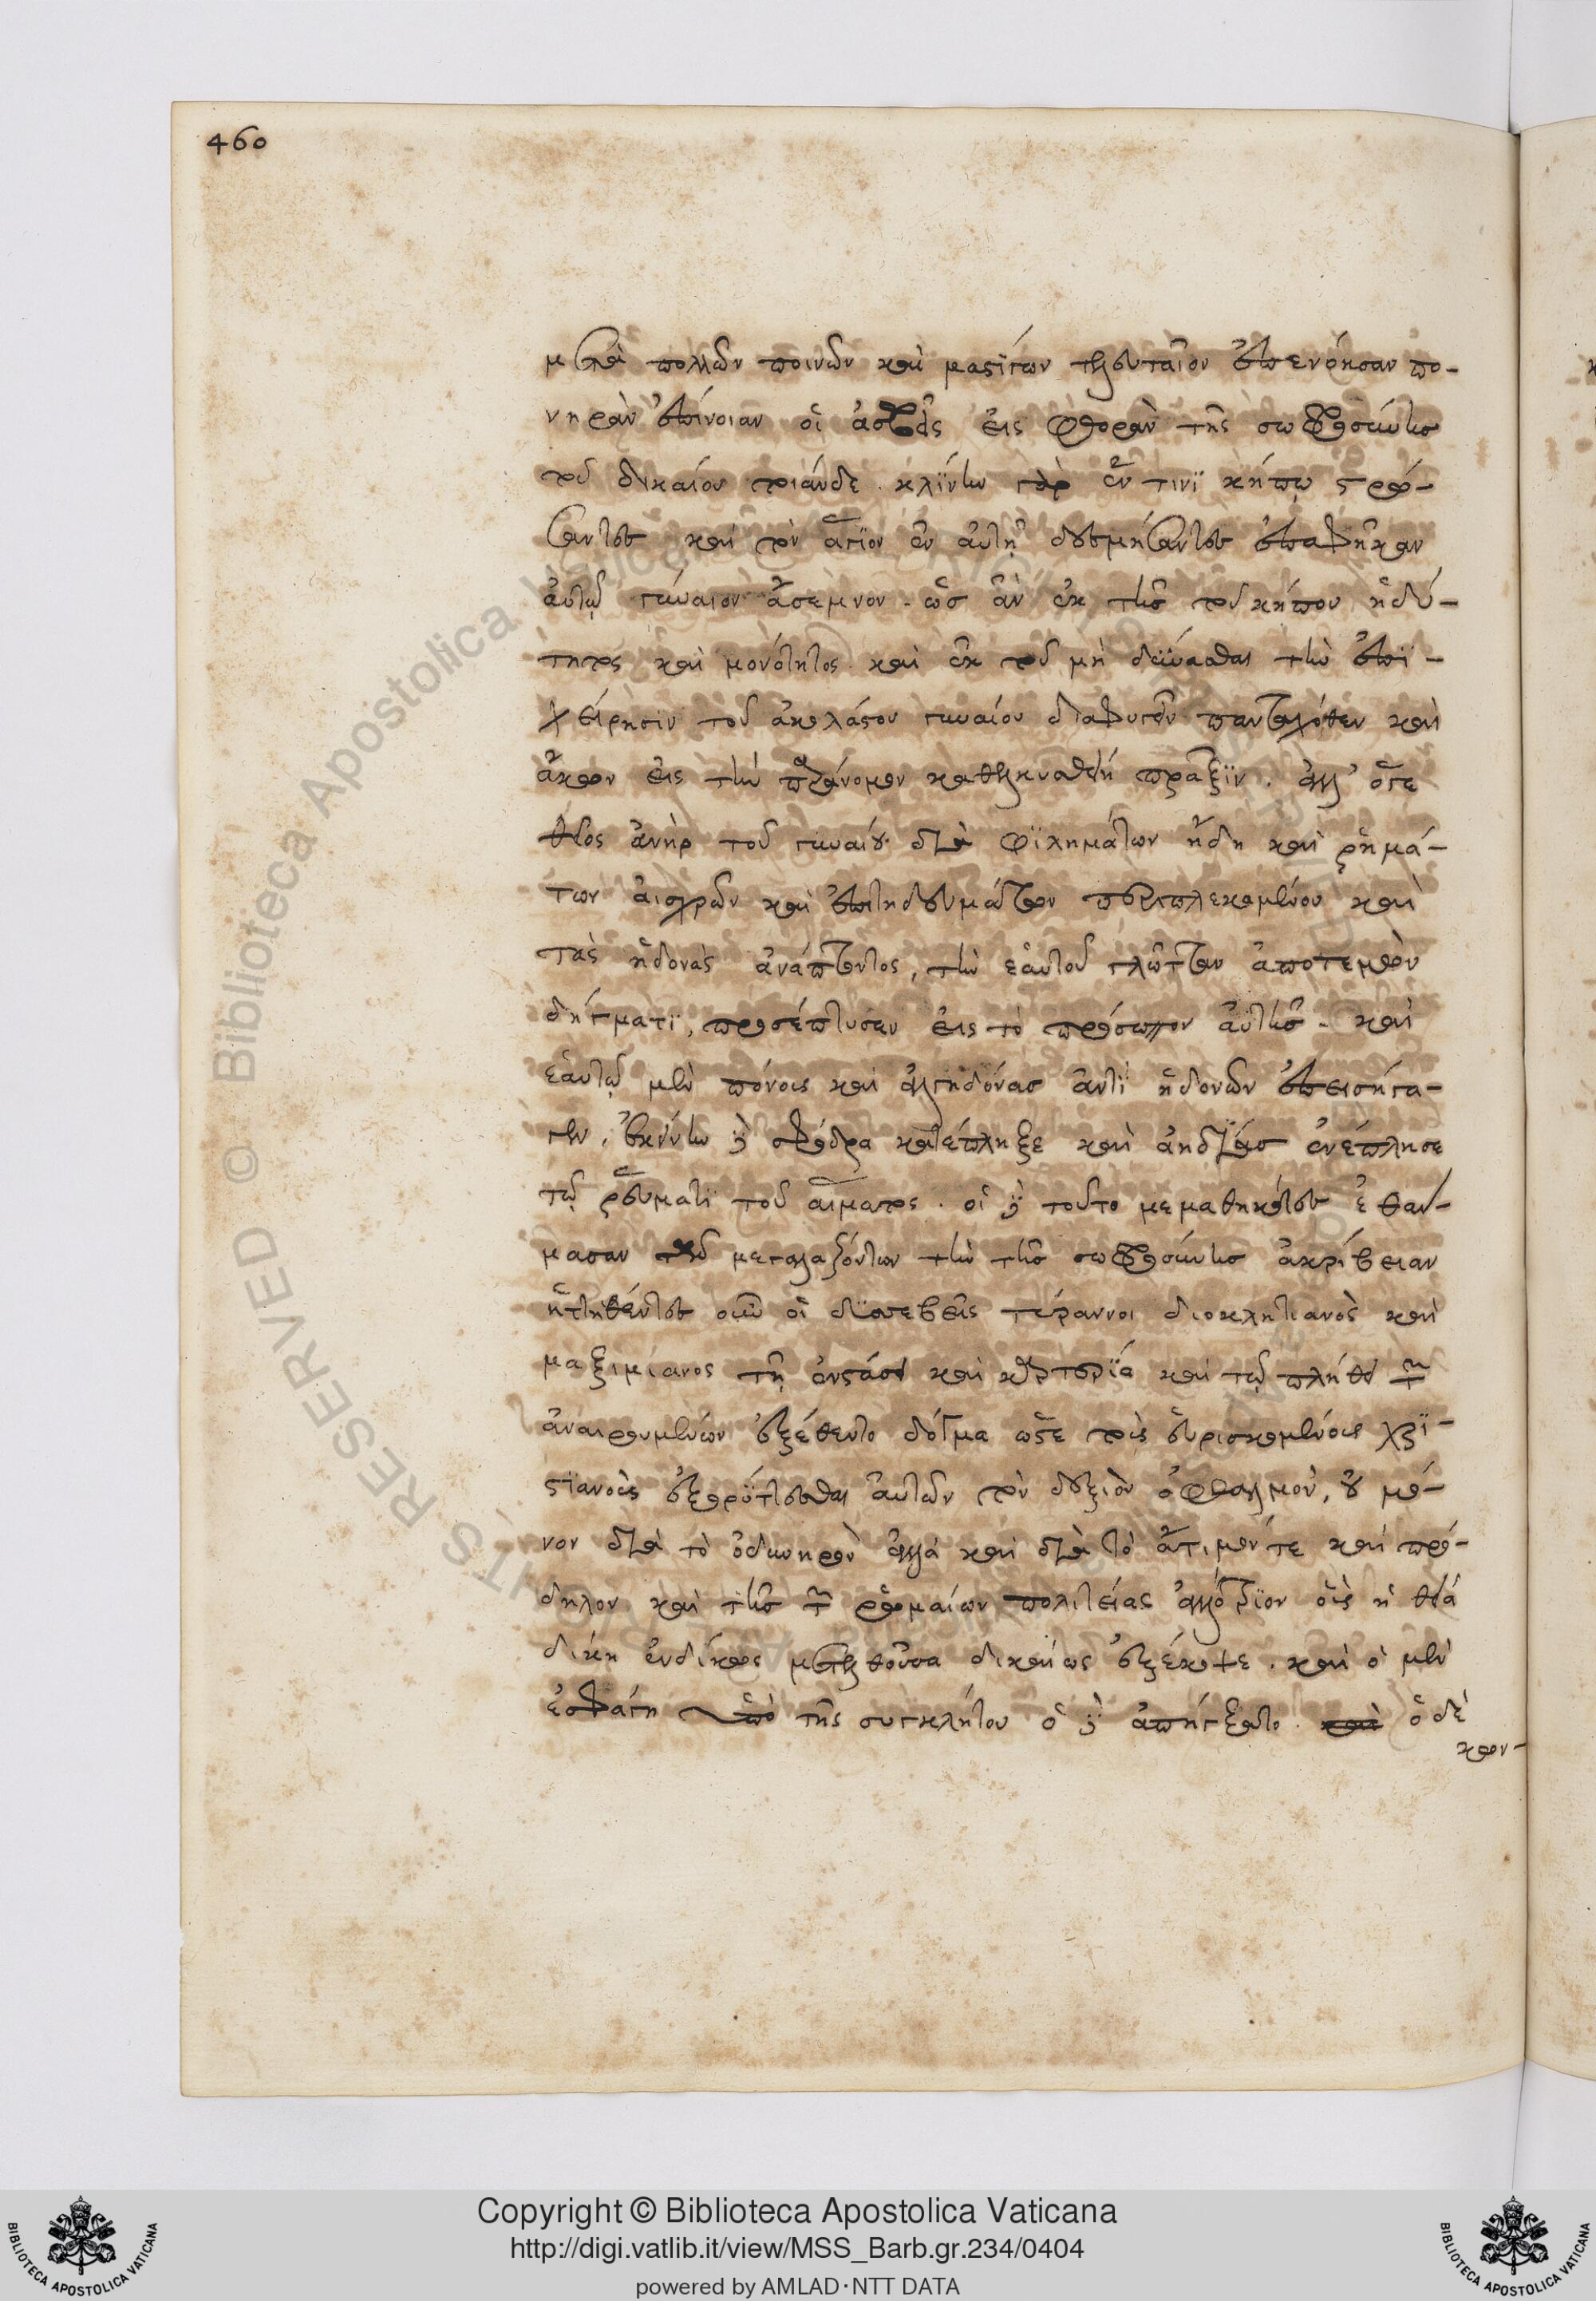 460
μετὰ πολλῶν ποινῶν καὶ μαστίγων τελευταῖον ἐπενόησαν πο-
νηρὰν ἐπίνοιαν οἱ ἀσεβεῖς εἰς φθορὰν τῆς σωφροσύνης
τοῦ δικαίου τοιάνδε. κλίνην γὰρ ἔν τινι κήπῳ στρώ-
σαντες καὶ τὸν ἅγιον ἐν αὐτῇ δεσμήσαντες ἐπαφῆκαν
αὐτῷ γύναιον ἄσεμνον. ὡς ἂν ἐκ τῆς τοῦ κήπου ἡδύ-
τητος καὶ μονότητος καὶ ἐκ τοῦ μὴ δύνασθαι τὴν ἐπι-
χείρησιν τοῦ ἀκολάστου γυναίου διαφυγεῖν πανταχόθεν καὶ
ἄκων εἰς τὴν παράνομον καθελκυσθείη πρᾶξιν. ἀλλ' ὅγε
θεῖος ἀνὴρ τοῦ γυναίου διὰ φιλημάτων ἤδη καὶ ῥημά-
των αἰσχρῶν καὶ ἐπιτηδευμάτων περιπλεκομένου καὶ
τὰς ἡδονὰς ἀνάπτοντος, τὴν ἑαυτοῦ γλῶτταν ἀποτεμὼν
δήγματι, προσέπτυσεν εἰς τὸ πρόσωπον αὐτῆς. καὶ
ἑαυτῷ μὲν πόνους καὶ ἀλγηδόνας ἀντὶ ἡδονῶν ἐπεισήγα-
γεν, ἐκείνην δὲ σφόδρα κατέπληξε καὶ ἀηδίας ἐνέπλησε
τῷ ῥεύματι τοῦ αἵματος. οἱ δὲ τοῦτο μεμαθηκότες ἐθαύ-
μασαν τοῦ μεγαλαζόντων τὴν τῆς σωφροσύνης ἀκρίβειαν
ἡττηθέντες οὖν οἱ δυσσεβεῖς τύραννοι διοκλητιανὸς καὶ
μαξιμιανος τῇ ἐνστάσει καὶ καρτερίᾳ καὶ τῷ πλήθει τῶν
ἀναιρουμένων ἐξέθεντο δόγμα ὥστε τοῖς εὑρισκομένοις χρι-
στιανοῖς ἐξορύττεσθαι αὐτῶν τὸν δεξιὸν ὀφθαλμὸν, οὐ μό-
νον διὰ τὸ ὀδυνηρὸν ἀλλὰ καὶ διὰ τὸ ἄτιμόν τε καὶ πρό-
δηλον καὶ τῆς τῶν ῥωμαίων πολιτείας ἀλλότριον οὓς ἡ θεία
δίκη ἐνδίκως μετελθοῦσα δικαίως ἐξέκοψε. καὶ ὁ μὲν
ἐσφάγη ὑπὸ τῆς συγκλήτου ὁ δὲ ἀπήγξατο. ὁ δὲ
κων-
Copyright © Biblioteca Apostolica Vaticana
http://digi.vatlib.it/view/MSS_Barb.gr.234/0404
powered by AMLAD·NTT DATA
BIBLIOTECA APOSTOLICA VATICANA
BIBLIOTECA APOSTOLICA VATICANA